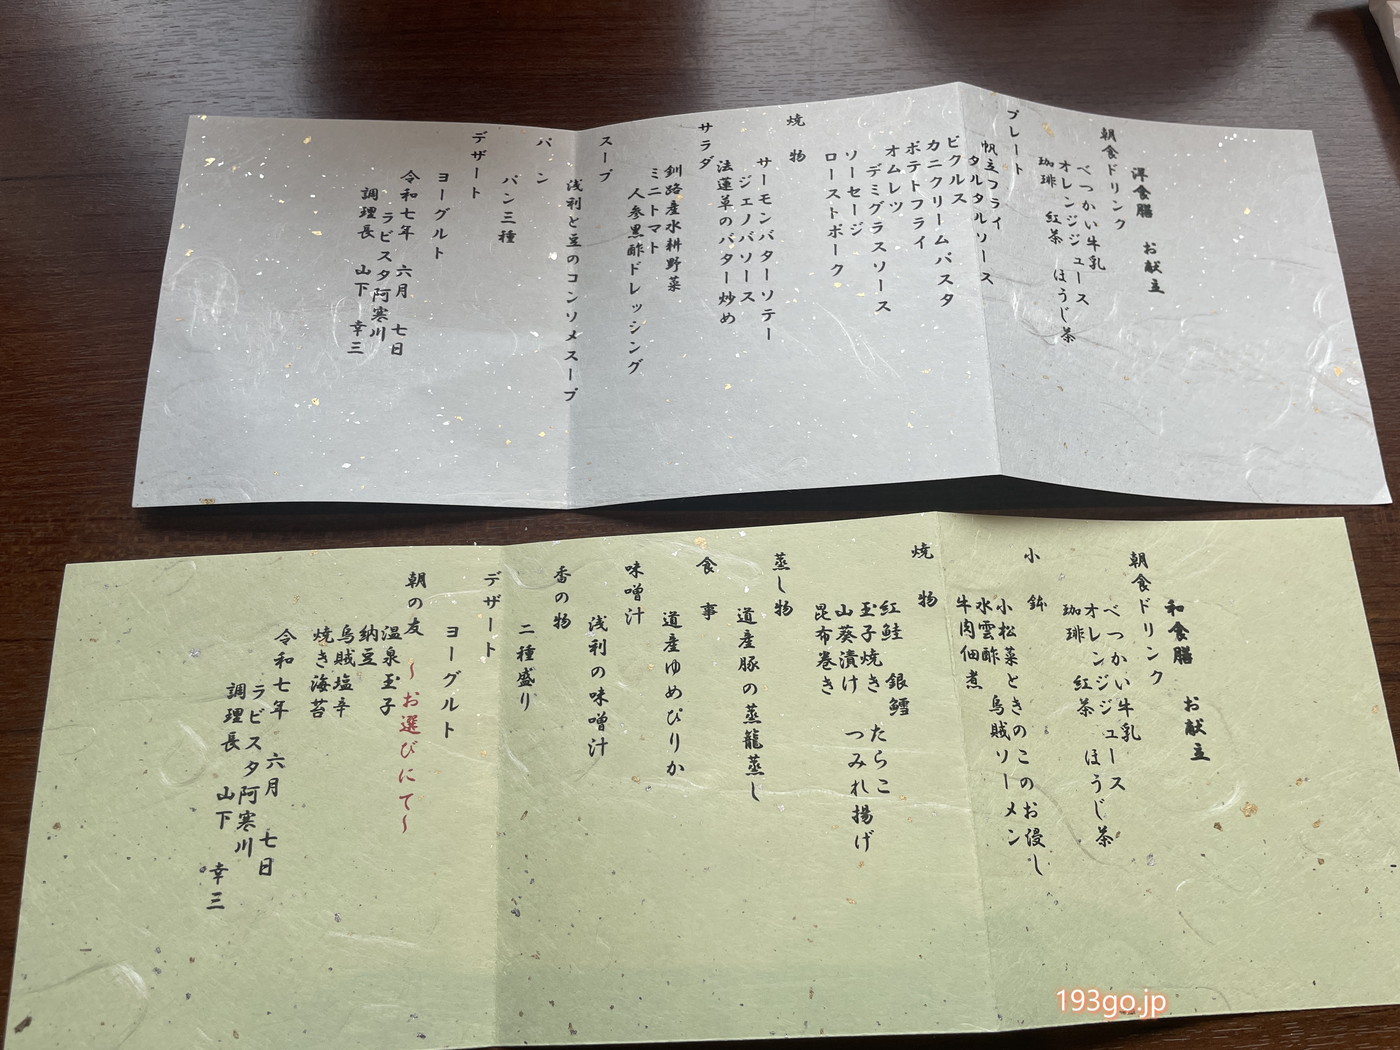 洋食膳　お献立
朝食ドリンク
べつかい牛乳
オレンジジュース
珈琲　紅茶　ほうじ茶
プレート
帆立フライ
タルタルソース
ピクルス
カニクリームパスタ
ポテトフライ
オムレツ
デミグラスソース
ソーセージ
ローストポーク
焼物
サーモンバターソテー
ジェノバソース
法蓮草のバター炒め
サラダ
釧路産水耕野菜
ミニトマト
人参黒酢ドレッシング
スープ
浅利と豆のコンソメスープ
パン
パン三種
デザート
ヨーグルト
令和七年　六月　七日
ラビスタ阿寒川
調理長　山下　幸三
和食膳　お献立
朝食ドリンク
べつかい牛乳
オレンジジュース
珈琲　紅茶　ほうじ茶
小鉢
小松菜ときのこのお浸し
水雲酢　烏賊ソーメン
牛肉佃煮
焼物
紅鮭　銀鱈　たらこ
玉子焼き　つみれ揚げ
山葵漬け
昆布巻き
蒸し物
道産豚の蒸籠蒸し
食事
道産ゆめぴりか
味噌汁
浅利の味噌汁
香の物
二種盛り
デザート
ヨーグルト
朝の友　～お選びにて～
温泉玉子
納豆
烏賊塩辛
焼き海苔
令和七年　六月　七日
ラビスタ阿寒川
調理長　山下　幸三
193go.jp